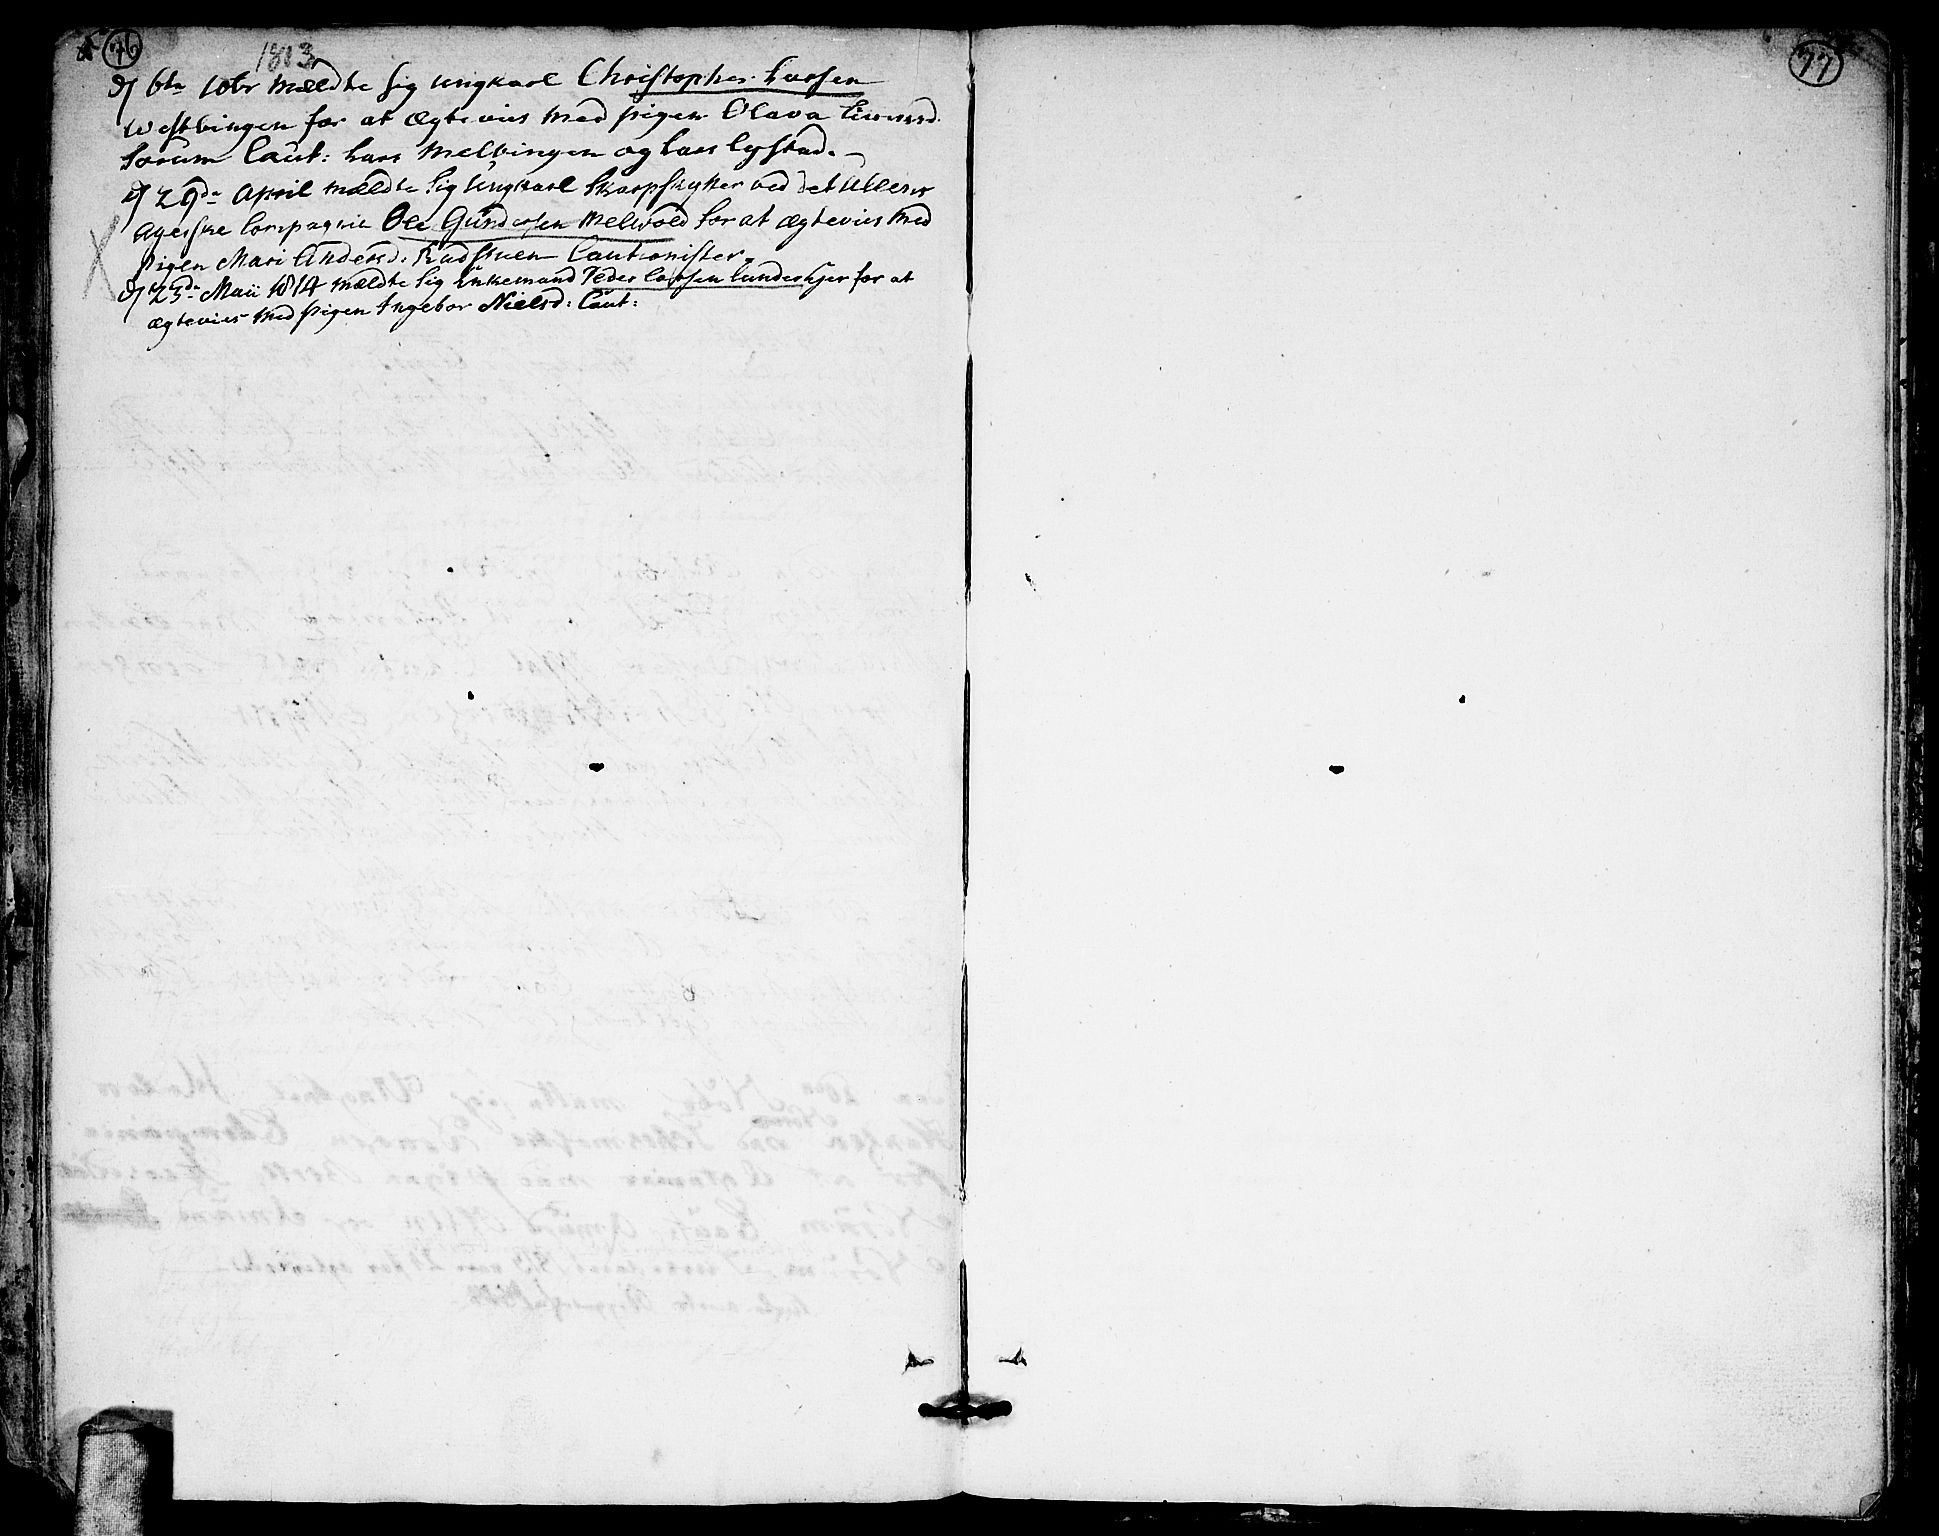 76
1813
d 6te 10br mældte sig ungkarl Christopher Larsen
Westbingen for at ægtevies med pigen Olava
Sørum Caut: Lars Melbingen og Lars Lystad.
d 29de April mældte sig Ungkarl Skarpskytter ved det
agerske Compagnie Ole Gundersen Melvold for at ægtevies med
pigen Mari Andersd: Cautionister.
d 23de Maii 1814 mældte sig Enkemand Peder Larsen Lunderkjer for at
ægtevies med pigen Ingebor Nielsd: Caut:
77